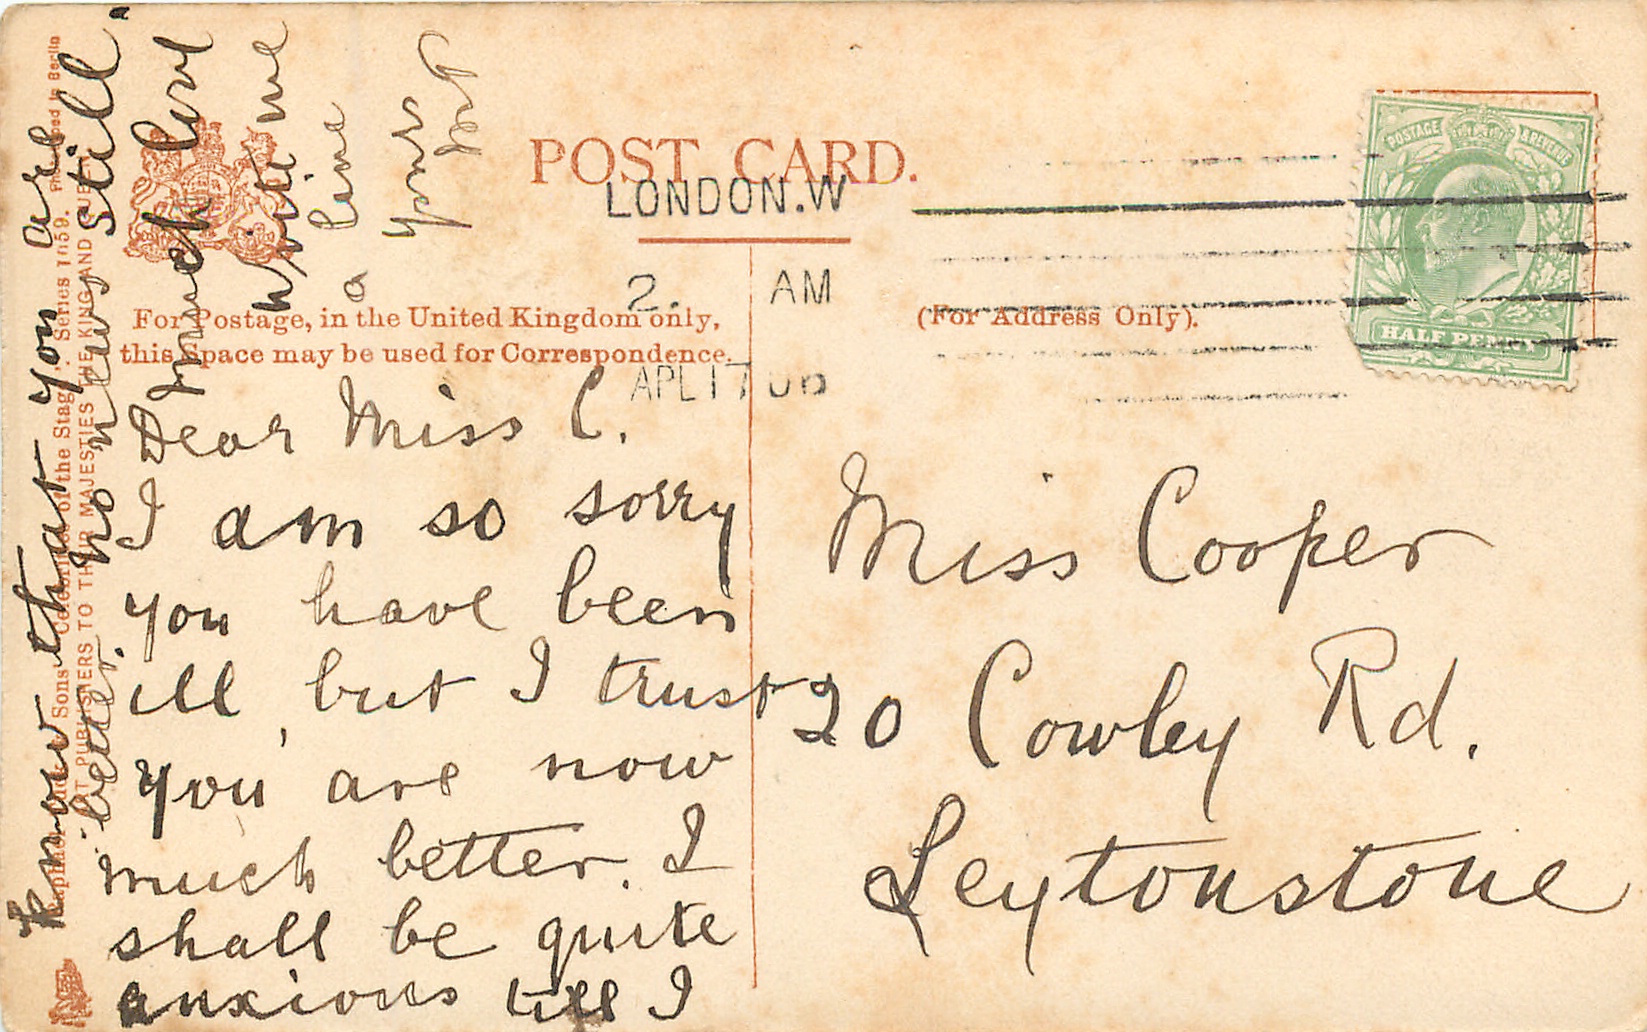 POST CARD.
LONDON.W
2. AM
APL 17 06
For Postage, in the United Kingdom only,
this space may be used for Correspondence.
(For Address Only).
POSTAGE & REVENUE
HALF PENNY
Dear Miss C.
I am so sorry
you have been
ill, but I trust
you are now
much better. I
shall be quite
anxious till I
know that you are
better.
no news still.
Much love
Write me
a line
yours
Miss Cooper
20 Cowley Rd.
Leytonstone
Raphael Tuck & Sons' Celebrities of the Stage Series 1059. Printed in Berlin
ART PUBLISHERS TO THEIR MAJESTIES THE KING AND QUEEN